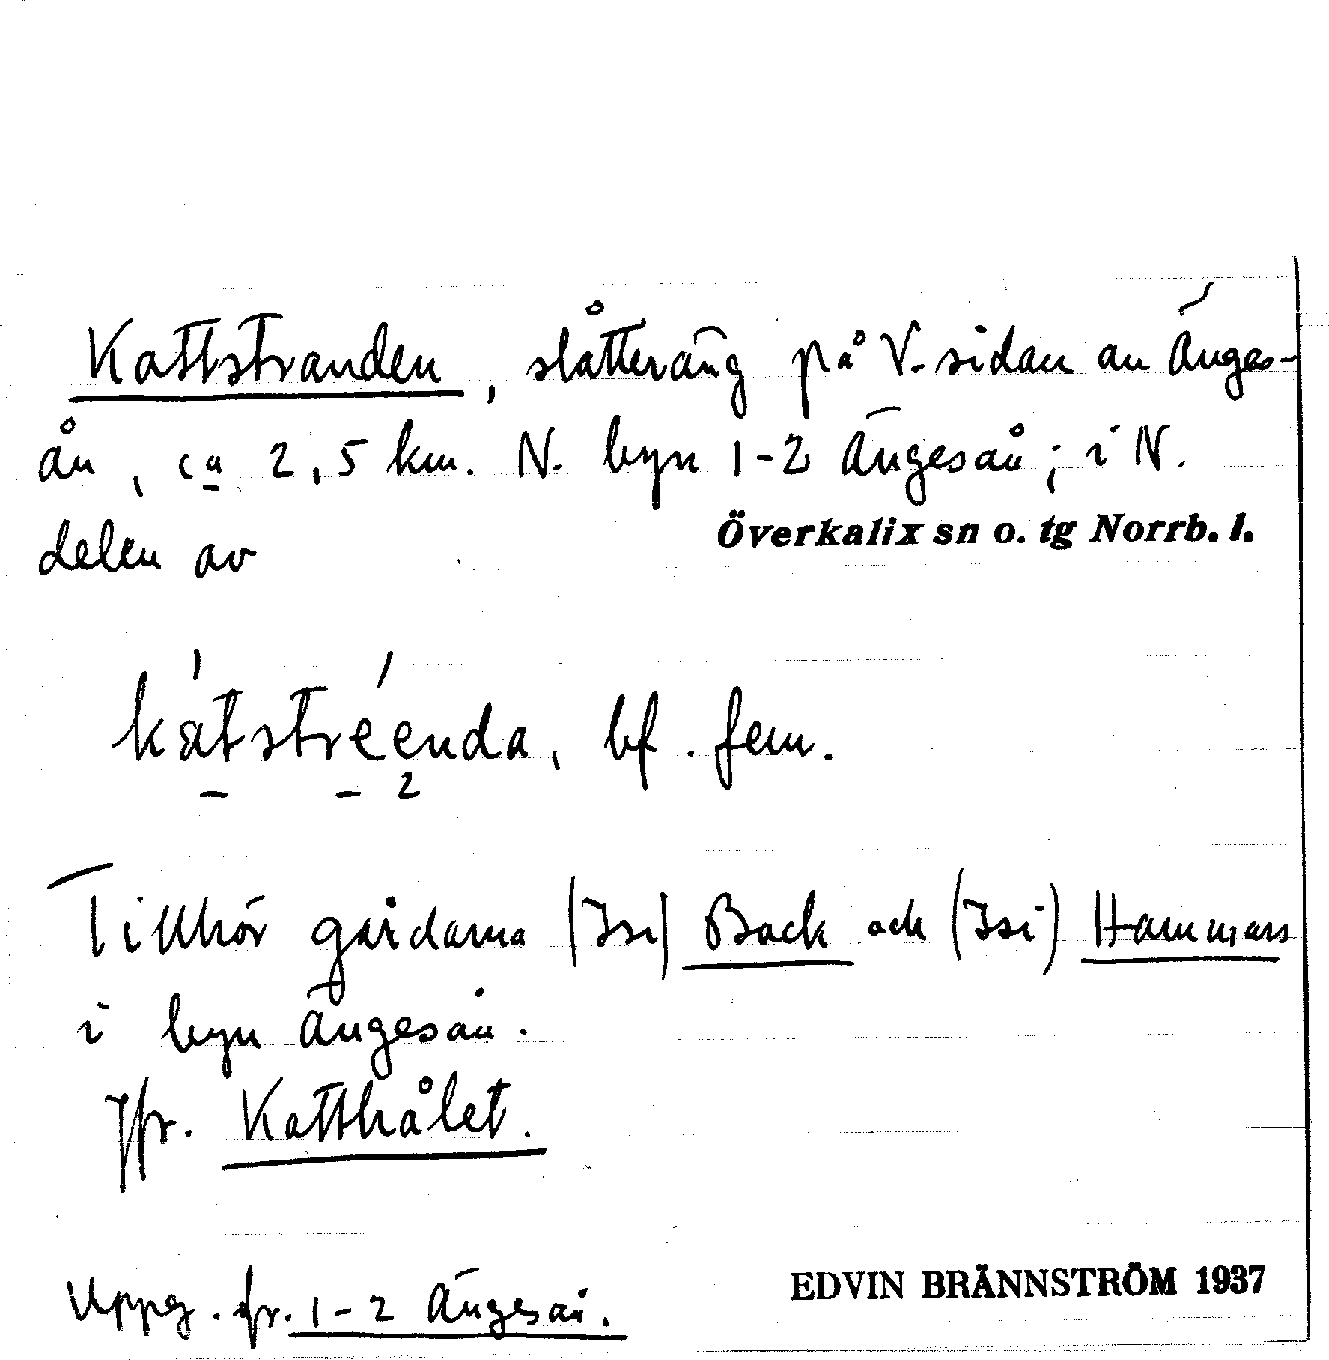 Kattstranden, slåtteräng på V. sidan av Änges-
ån, ca 2,5 km. N. byn 1-2 Ängesån; i N.
delen av
Överkalix sn o. tg Norrb. l.
kátstréenda, bf. fem.
Tillhör gårdarna (Isi) Back och (Isi) Hammars
i byn Ängesån.
Jfr. Katthålet.
Uppg. fr. 1-2 Ängesån.
EDVIN BRÄNNSTRÖM 1937